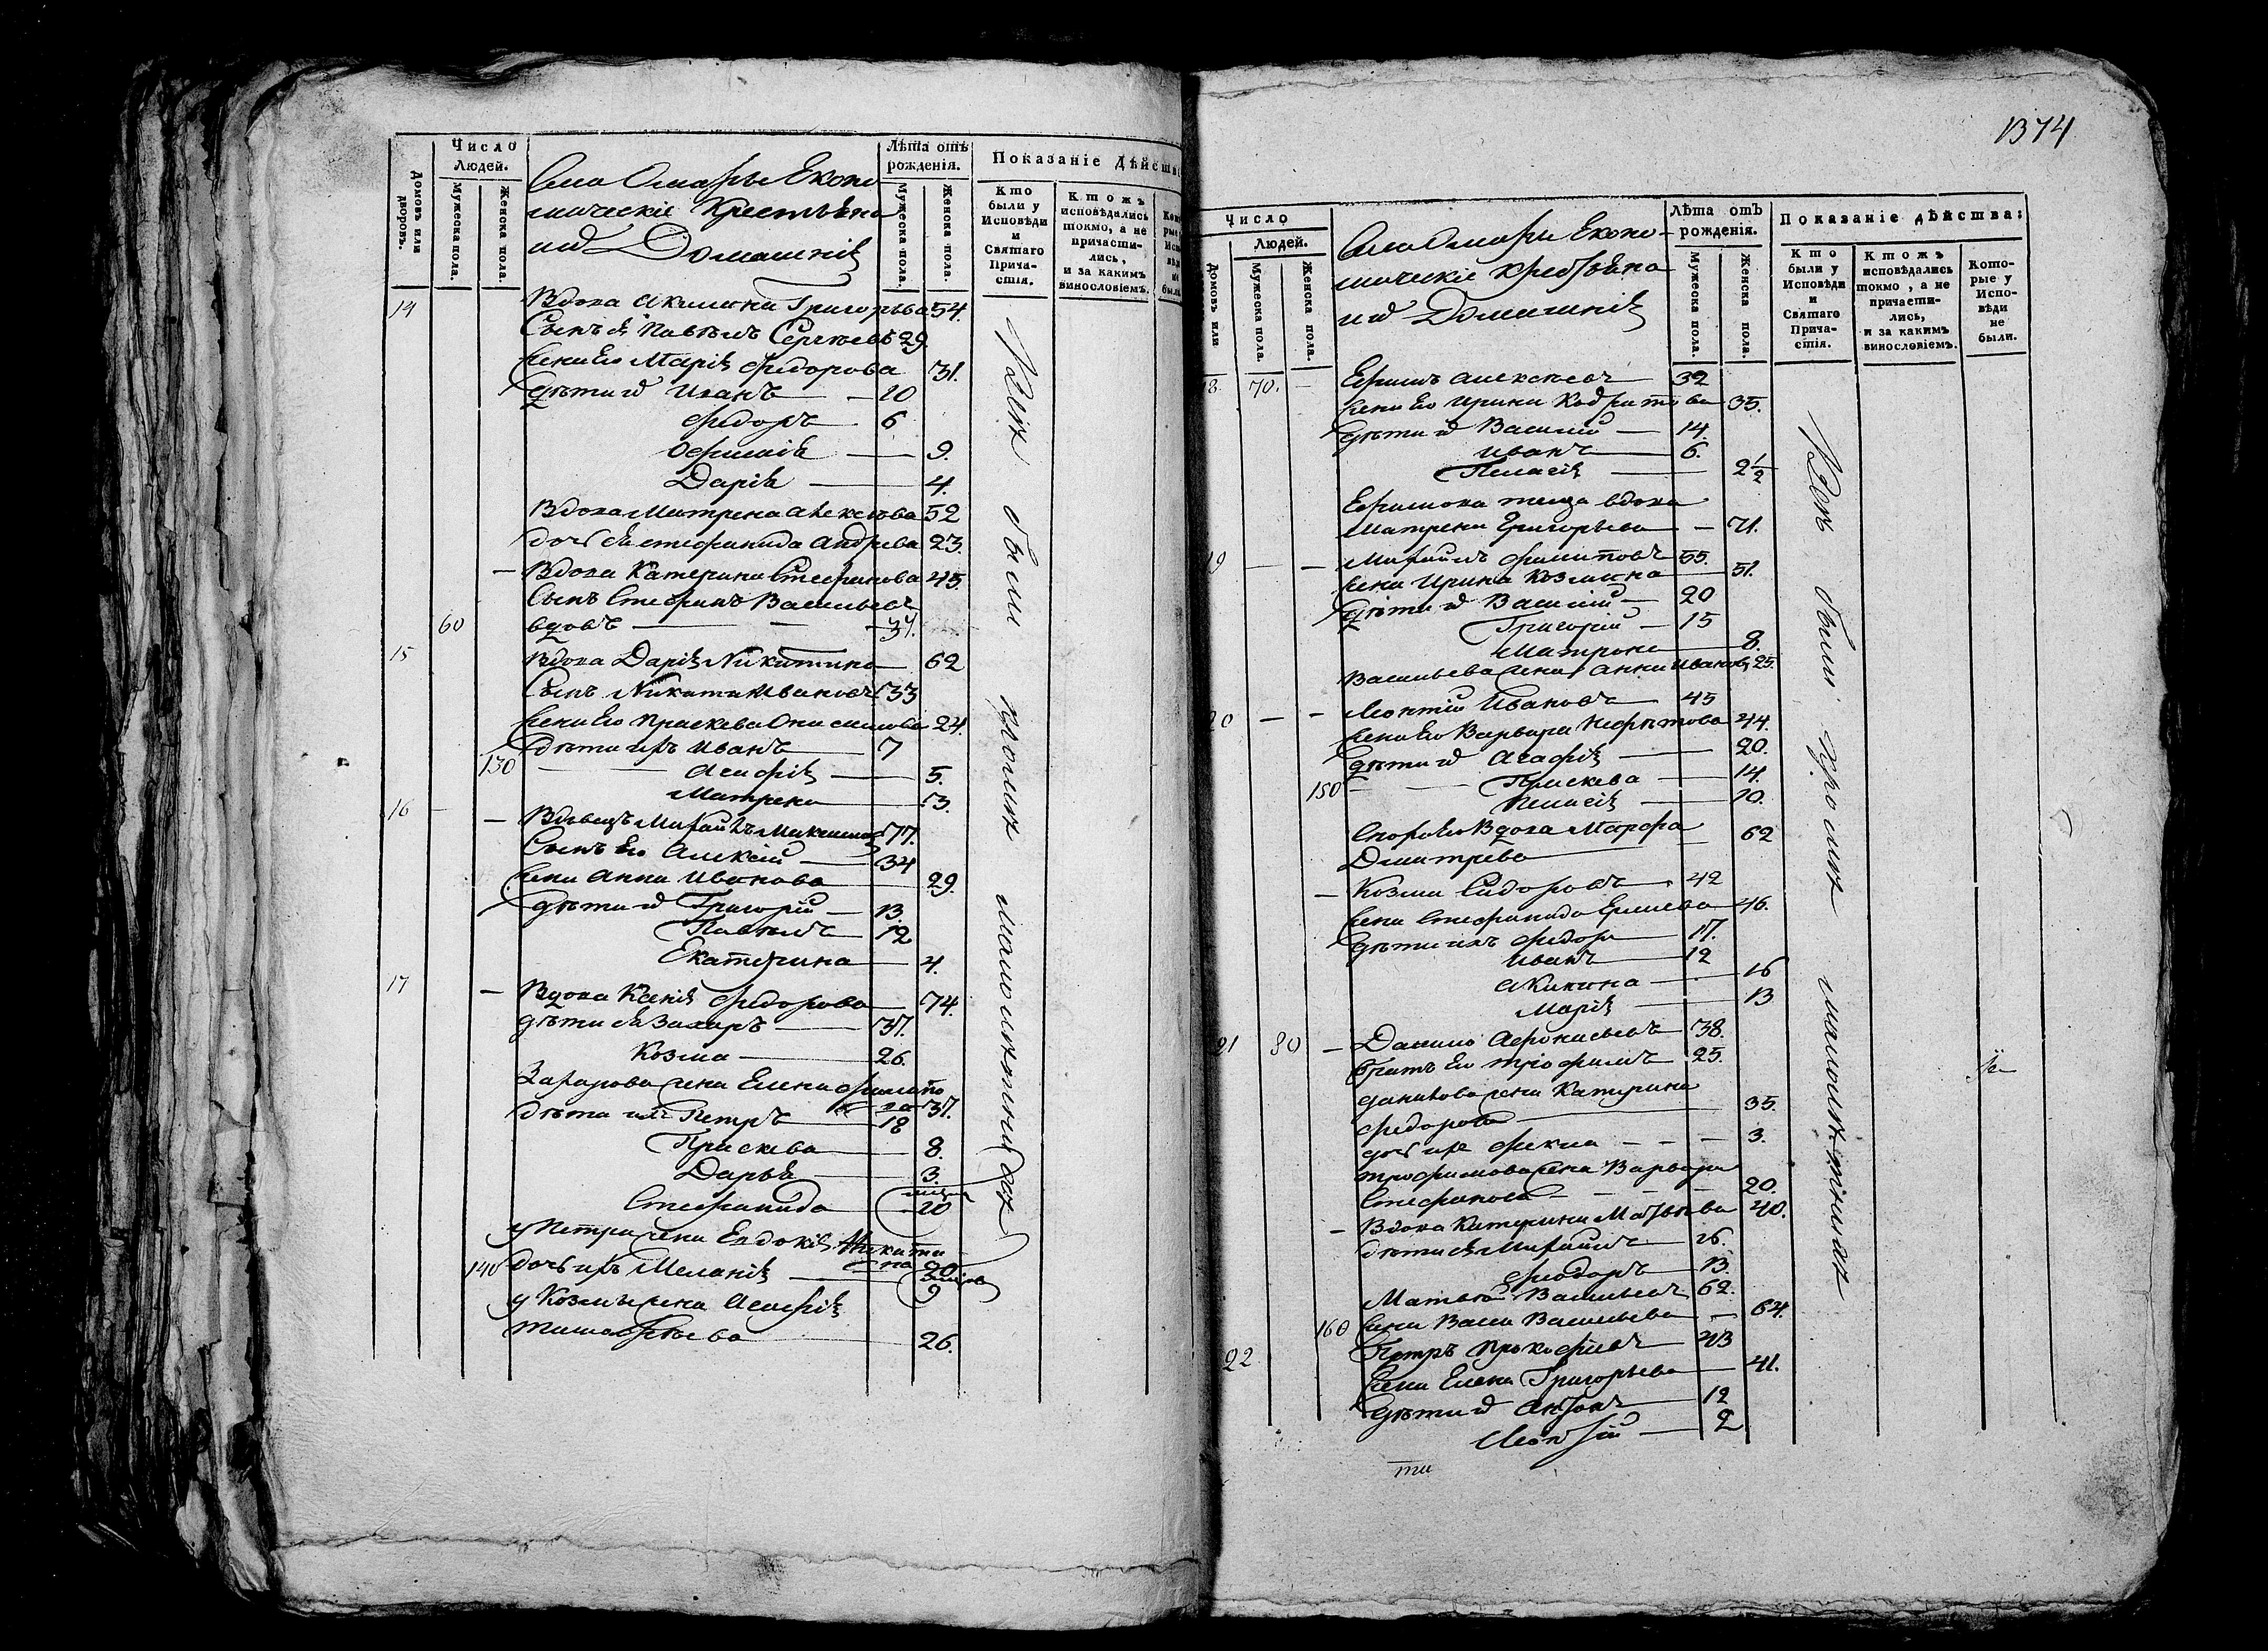 Число
Людей.
Домовъ или дворовъ.
Мужеска пола.
Женска пола.
Села Омары Еконо
мическiе Крестьяна
ихъ Домашнiя
Лѣта отъ
рожденiя.
Мужеска пола.
Женска пола.
Показанiе Дѣйства
Кто были у Исповѣди и Святаго Прича-стiя.
Ктожъ исповѣдались токмо, а не причасти-лись, и за какимъ винословiемъ.
14 Вдова Акилина Григорьева 54.
Сынъ ея Павѣлъ Сергѣевъ 29.
жена Его Марiя Федорова 31.
дѣти ихъ Иванъ 10
Федоръ 6
Офимiя 9.
Дарiя 4.
Вдова Матрена Алексѣева 52
дочь ея Стефанида Андреева 23.
Вдова Катерина Стефанова 45.
Сынъ Стефанъ Васильевъ
60 вдовъ 37.
15 Вдова Дарiя Никитина 62
Сынъ Никита Ивановъ 33
жена Его Праскева Онисимова 24.
дѣти ихъ Иванъ 7
130 Агафiя 5.
Матрена 3.
16 Вдовецъ Михайлъ Максимовъ 77.
Сынъ Его Алексiй 34
жена Анна Иванова 29.
дѣти ихъ Григорiй 13.
Павѣлъ 12
Екатерина 4.
17 Вдова Ксенiя Федорова 74.
дѣти ея Захаръ 37.
Козма 26.
Захарова жена Елена Филипо
ва 37.
дѣти ихъ Петръ 18
Праскева 8.
Дарья 3.
Стефанида 10
у Петра жена Евдокiя Никити
на 20
140 дочь ихъ Меланiя 9
у Козмы жена Агафiя
Тимофѣева 26.
Всѣ были кромѣ малолѣтныхъ
1374
Число
Людей.
Домовъ или
Мужеска пола.
Женска пола.
Села Омары Еконо-
мическiе крестьяна
ихъ Домашнiя
Лѣта отъ
рожденiя.
Мужеска пола.
Женска пола.
Показанiе дѣйства:
Кто были у Исповѣди и Святаго Прича-стiя.
Ктожъ исповѣдались токмо, а не причасти-лись, и за какимъ винословiемъ.
Кото-рые у Испо-вѣди не были.
18 70. Ефимъ Алексѣевъ 32
жена Его Ирина Кодратова 35.
дѣти ихъ Василiй 14.
Иванъ 6.
Пелагiя 2 1/2
Ефимова теща вдова
Матрена Григорьева 71.
19 Михайлъ Филиповъ 55.
жена Ирина Козмина 51.
дѣти ихъ Василiй 20
Григорiй 15
Матрона 8.
Васильева жена Анна Иванова 25.
20 Леонтiй Ивановъ 45
жена Его Варвара Нефетова 44.
дѣти ихъ Агафiя 20.
150 Праскева 14.
Пелагiя 10.
Сноха Его Вдова Марфа
Дмитрева 62
Козма Сидоровъ 42
жена Стефанида Ермиева 46.
дѣти ихъ Федоръ 17.
Иванъ 12
Акилина 16
Марiя 13
21 80 Данило Афонасьевъ 38.
братъ Его Трофимъ 25.
данилова жена Катерина
Федорова 35.
дочь ихъ Фекла 3.
Трофимова жена Варвара
Стефанова 20.
Вдова Катерина Матвѣева 40.
дѣти ея Михайлъ 16.
Феодоръ 13.
Матвей Васильевъ 62.
160 жена Васса Васильева 64.
22 Петръ Прокофьевъ 43
жена Елена Григорьева 41.
дѣти ихъ Антонъ 12
Леонтiй 2
ти
Всѣ были кромѣ малолѣтныхъ